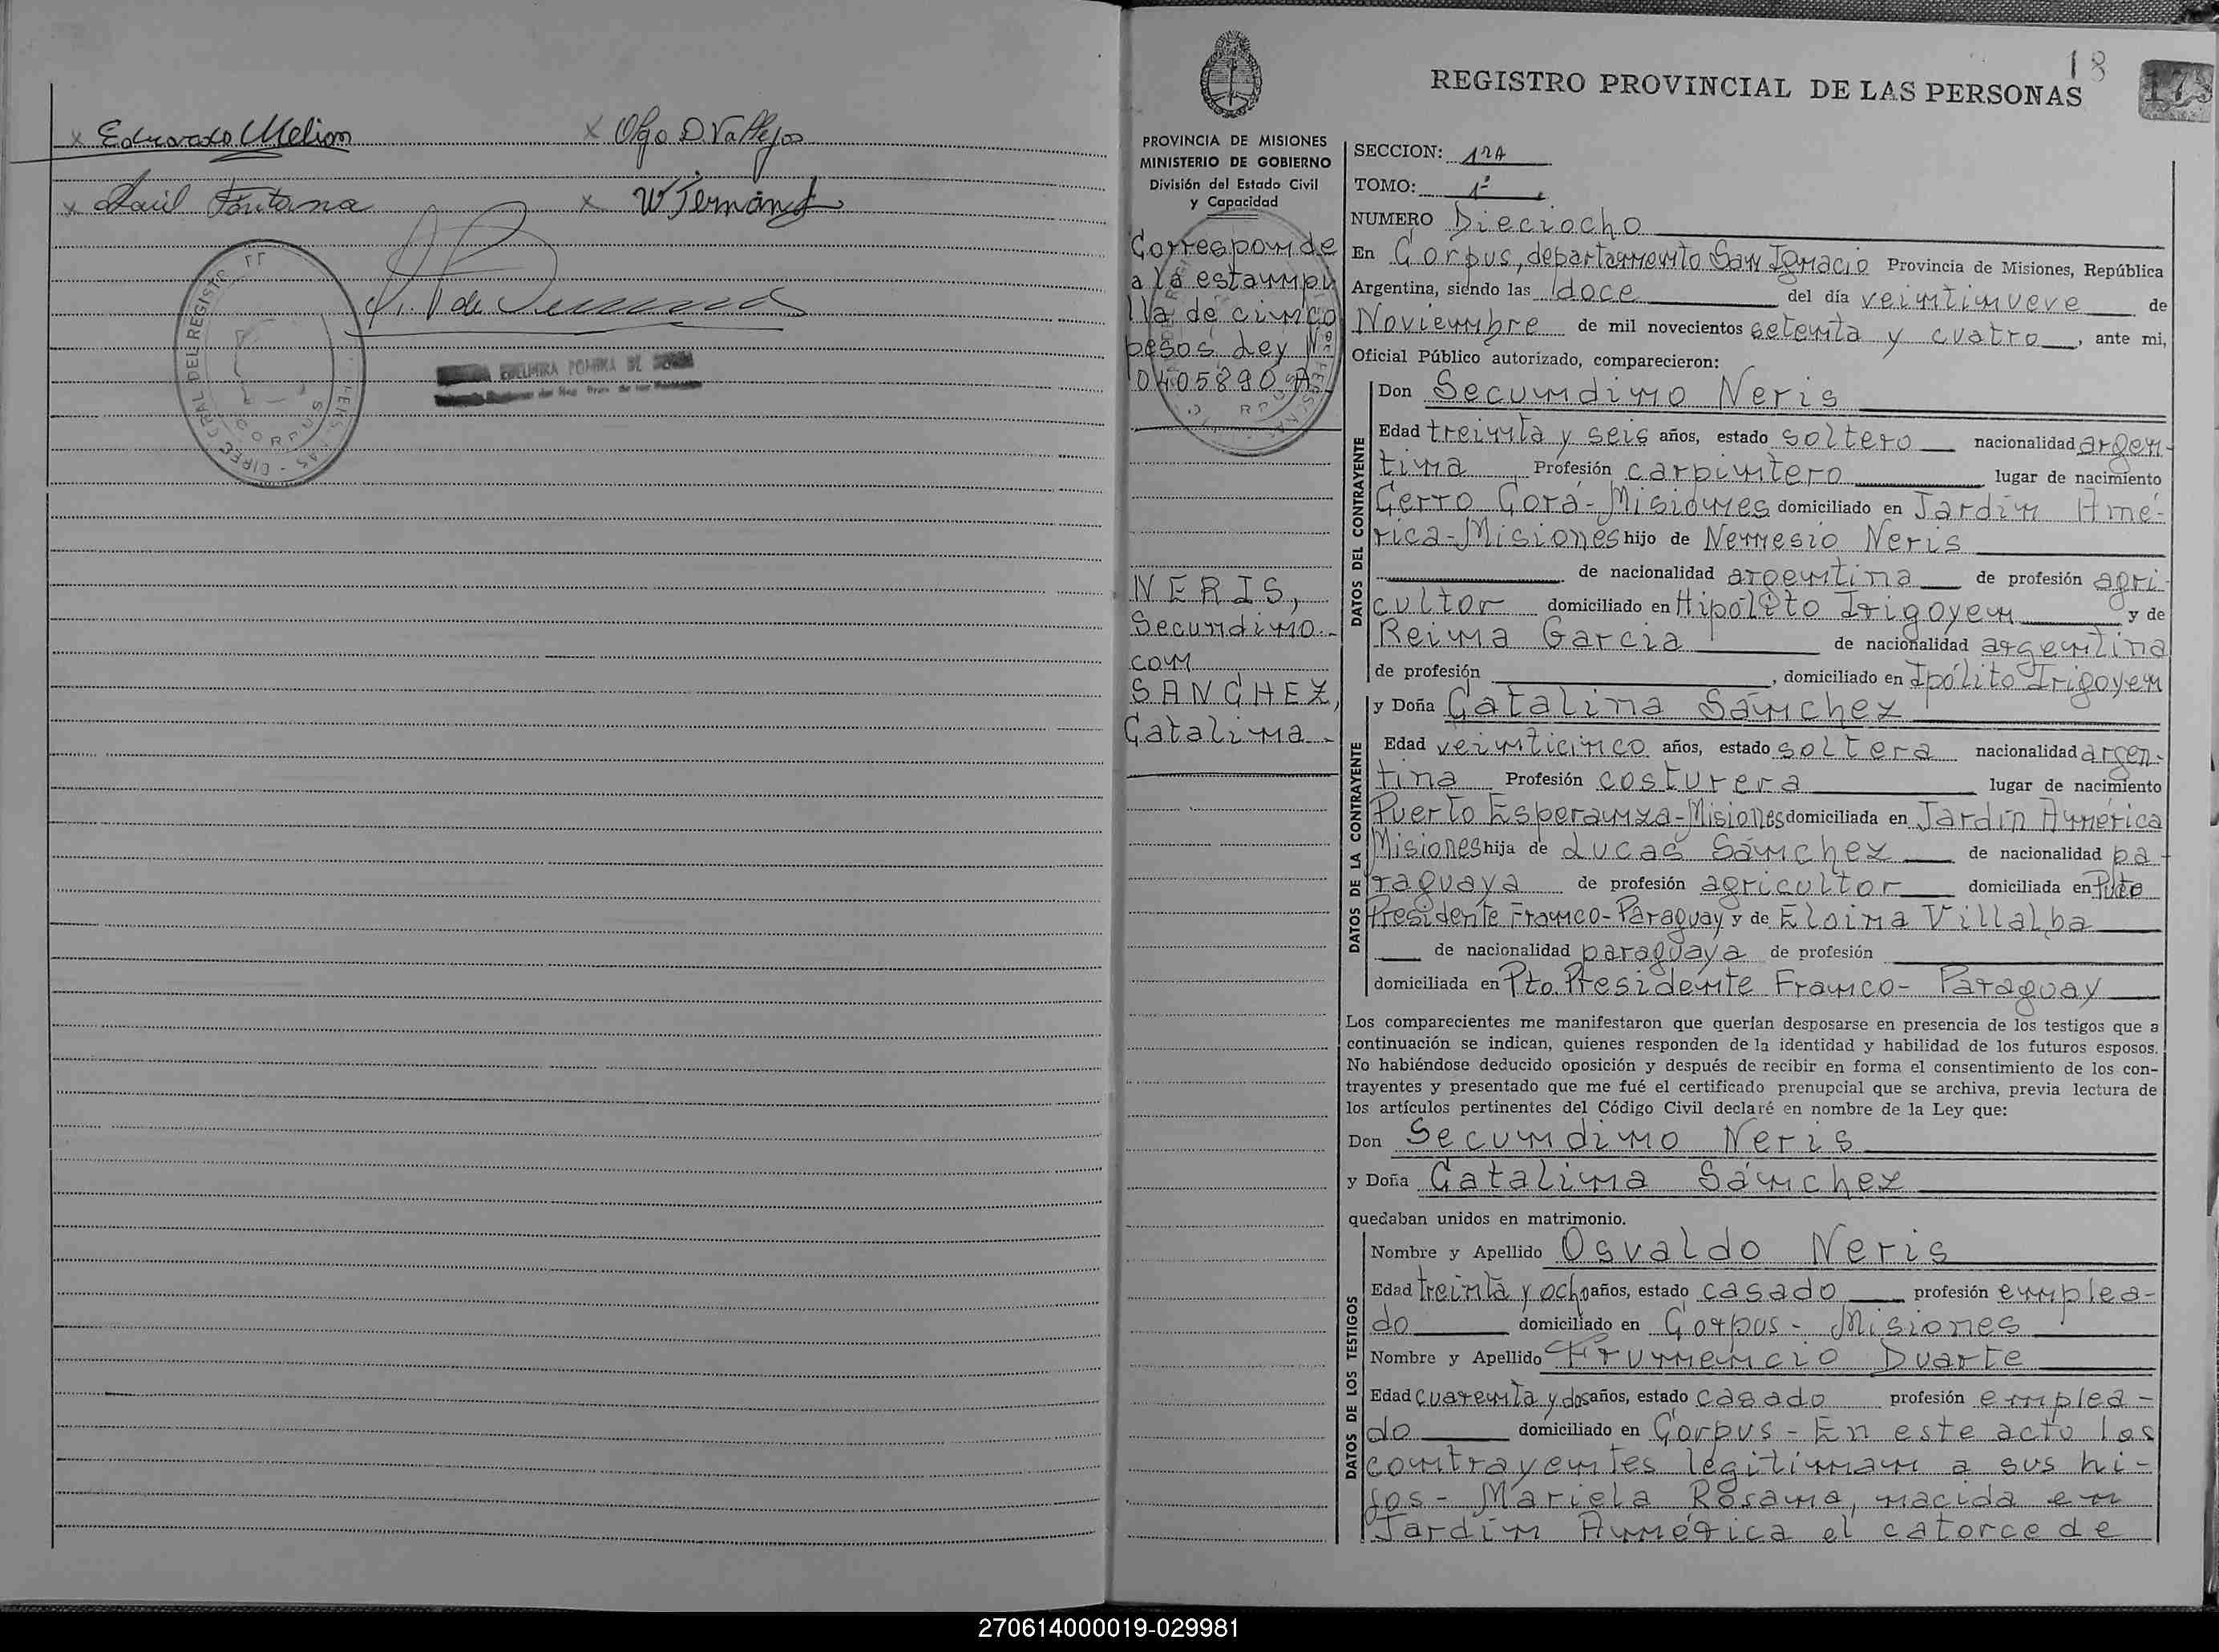 x Eduardo Melion x Olga D. Vallejos
x Raúl Fontana x W Fernández
CORPUS
18
173
REGISTRO PROVINCIAL DE LAS PERSONAS
PROVINCIA DE MISIONES
MINISTERIO DE GOBIERNO
División del Estado Civil
y Capacidad
Corresponde
a la estampi
lla de cinco
pesos Ley Nº
0405890 A
NERIS,
Secundino.-
con
SANCHEZ,
Catalina.-
SECCION: 12A
TOMO: 1º
NUMERO Dieciocho
En Corpus, departamento San Ignacio Provincia de Misiones, República
Argentina, siendo las doce del día veintinueve de
Noviembre de mil novecientos setenta y cuatro, ante mi,
Oficial Público autorizado, comparecieron:
DATOS DEL CONTRAYENTE
Don Secundino Neris
Edad treinta y seis años, estado soltero nacionalidad argen-
tina Profesión carpintero lugar de nacimiento
Cerro Corá-Misiones domiciliado en Jardín Amé-
rica-Misiones hijo de Nemesio Neris
de nacionalidad argentina de profesión agri-
cultor domiciliado en Hipólito Irigoyen y de
Reina Garcia de nacionalidad argentina
de profesión , domiciliado en Ipólito Irigoyen
DATOS DE LA CONTRAYENTE
y Doña Catalina Sánchez
Edad veinticinco años, estado soltera nacionalidad argen-
tina Profesión costurera lugar de nacimiento
Puerto Esperanza-Misiones domiciliada en Jardín América
Misiones hija de Lucas Sánchez de nacionalidad pa-
raguaya de profesión agricultor domiciliada en
Presidente Franco-Paraguay y de Eloina Villalba
de nacionalidad paraguaya de profesión
domiciliada en Pto. Presidente Franco- Paraguay
Los comparecientes me manifestaron que querían desposarse en presencia de los testigos que a
continuación se indican, quienes responden de la identidad y habilidad de los futuros esposos.
No habiéndose deducido oposición y después de recibir en forma el consentimiento de los con-
trayentes y presentado que me fué el certificado prenupcial que se archiva, previa lectura de
los artículos pertinentes del Código Civil declaré en nombre de la Ley que:
Don Secundino Neris
y Doña Catalina Sánchez
quedaban unidos en matrimonio.
DATOS DE LOS TESTIGOS
Nombre y Apellido Osvaldo Neris
Edad treinta y ocho años, estado casado profesión emplea-
do domiciliado en Corpus- Misiones
Nombre y Apellido Frumencio Duarte
Edad cuarenta y dos años, estado casado profesión emplea-
do domiciliado en Corpus - En este acto los
contrayentes legitiman a sus hi-
jos- Mariela Rosana, nacida en
Jardín América el catorce de
270614000019-029981